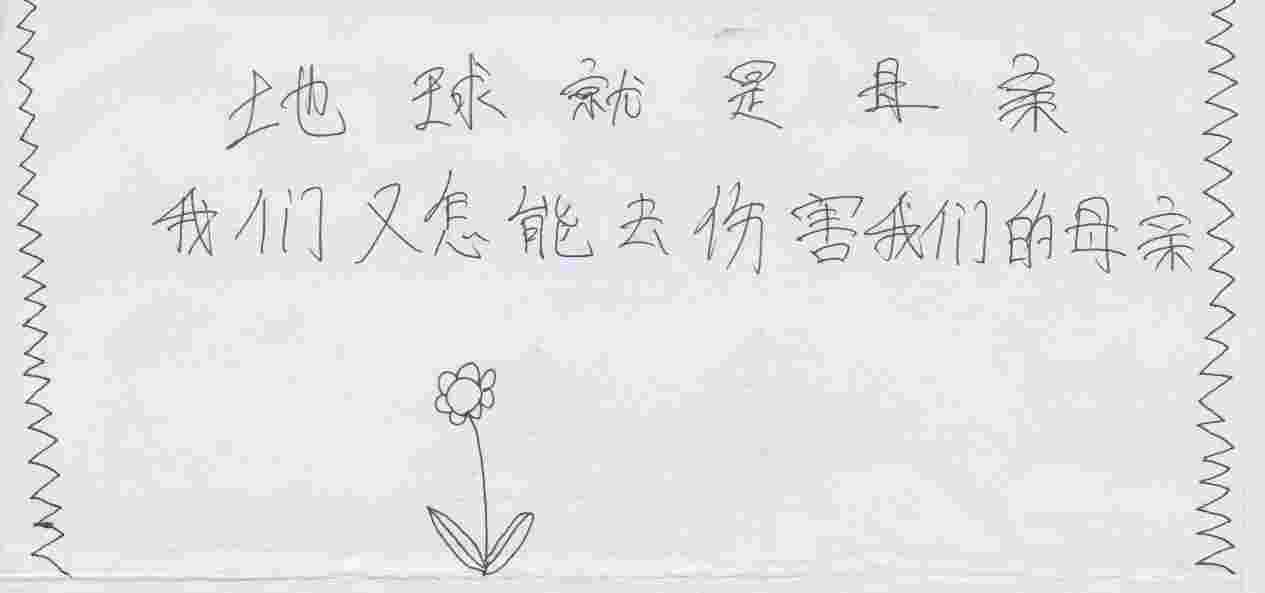 地球就是母亲
我们又怎能去伤害我们的母亲